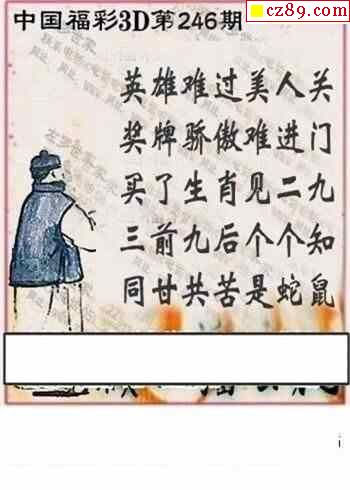 cz89.com
中国福彩3D第246期
英雄难过美人关
奖牌骄傲难进门
买了生肖见二九
三前九后个个知
同甘共苦是蛇鼠